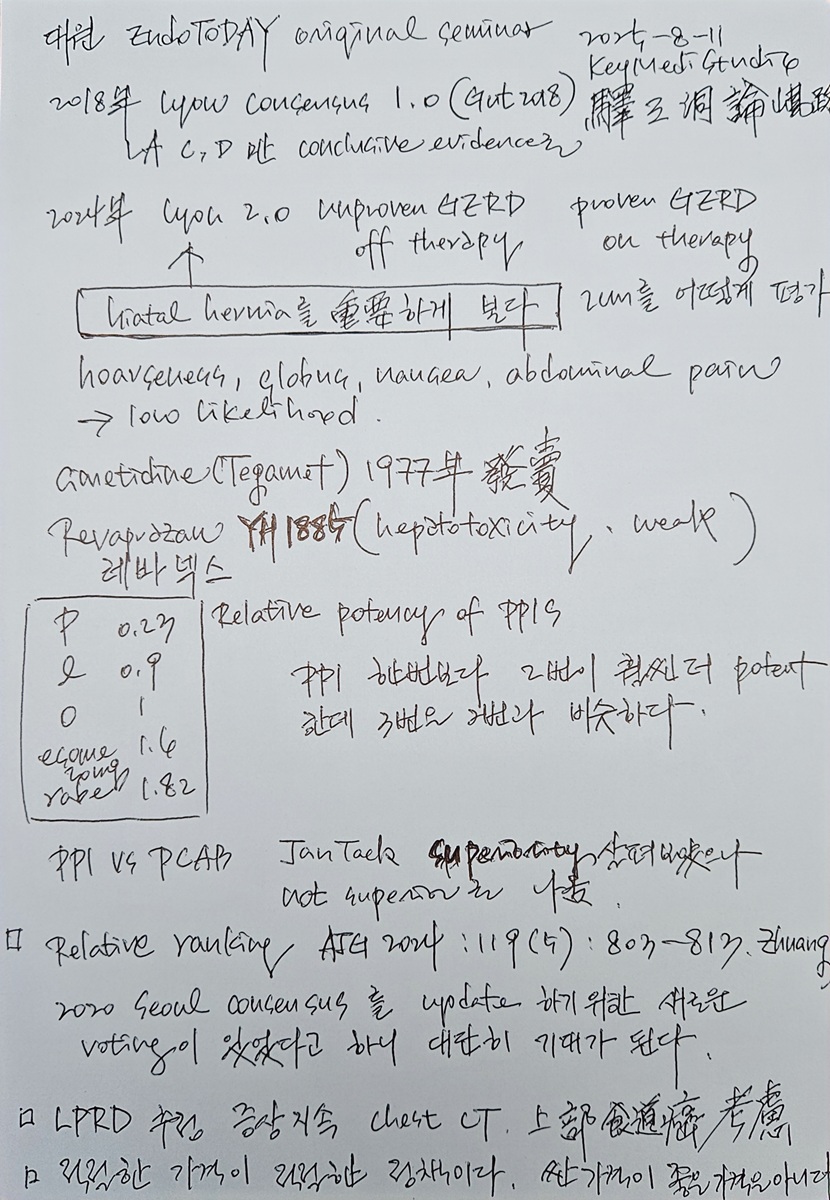 대원 EndoTODAY original seminar 2025-8-11
KeyMediStudio
2018年 Lyon consensus 1.0 (Gut 2018)
LA C, D 만 conclusive evidence로
2024年 Lyon 2.0 unproven GERD proven GERD
off therapy on therapy
hiatal hernia를 重要하게 보다 2cm를 어떻게 평가
hoarseness, globus, nausea, abdominal pain
→ low likelihood.
Cimetidine (Tegamet) 1977年 發賣
Revaprazan YH1885 (hepatotoxicity, weak)
레바넥스
P 0.23 Relative potency of PPIs
l 0.9 PPI 한번보다 2번이 훨씬 더 potent
O 1 한데 3번은 2번과 비슷하다.
esome 1.6
rabe 1.82
PPI vs PCAB JanTack superiority 살펴보았으나
not superior로 나옴.
□ Relative ranking AJG 2024 : 119(5) : 803-813. Zhuang
2020 Seoul consensus를 update 하기 위한 새로운
voting이 있었다고 하니 대단히 기대가 된다.
□ LPRD 추정 증상지속 chest CT. 上部食道癌 考慮
□ 적절한 가격이 적절한 정책이다. 싼 가격이 좋은 가격은 아니다